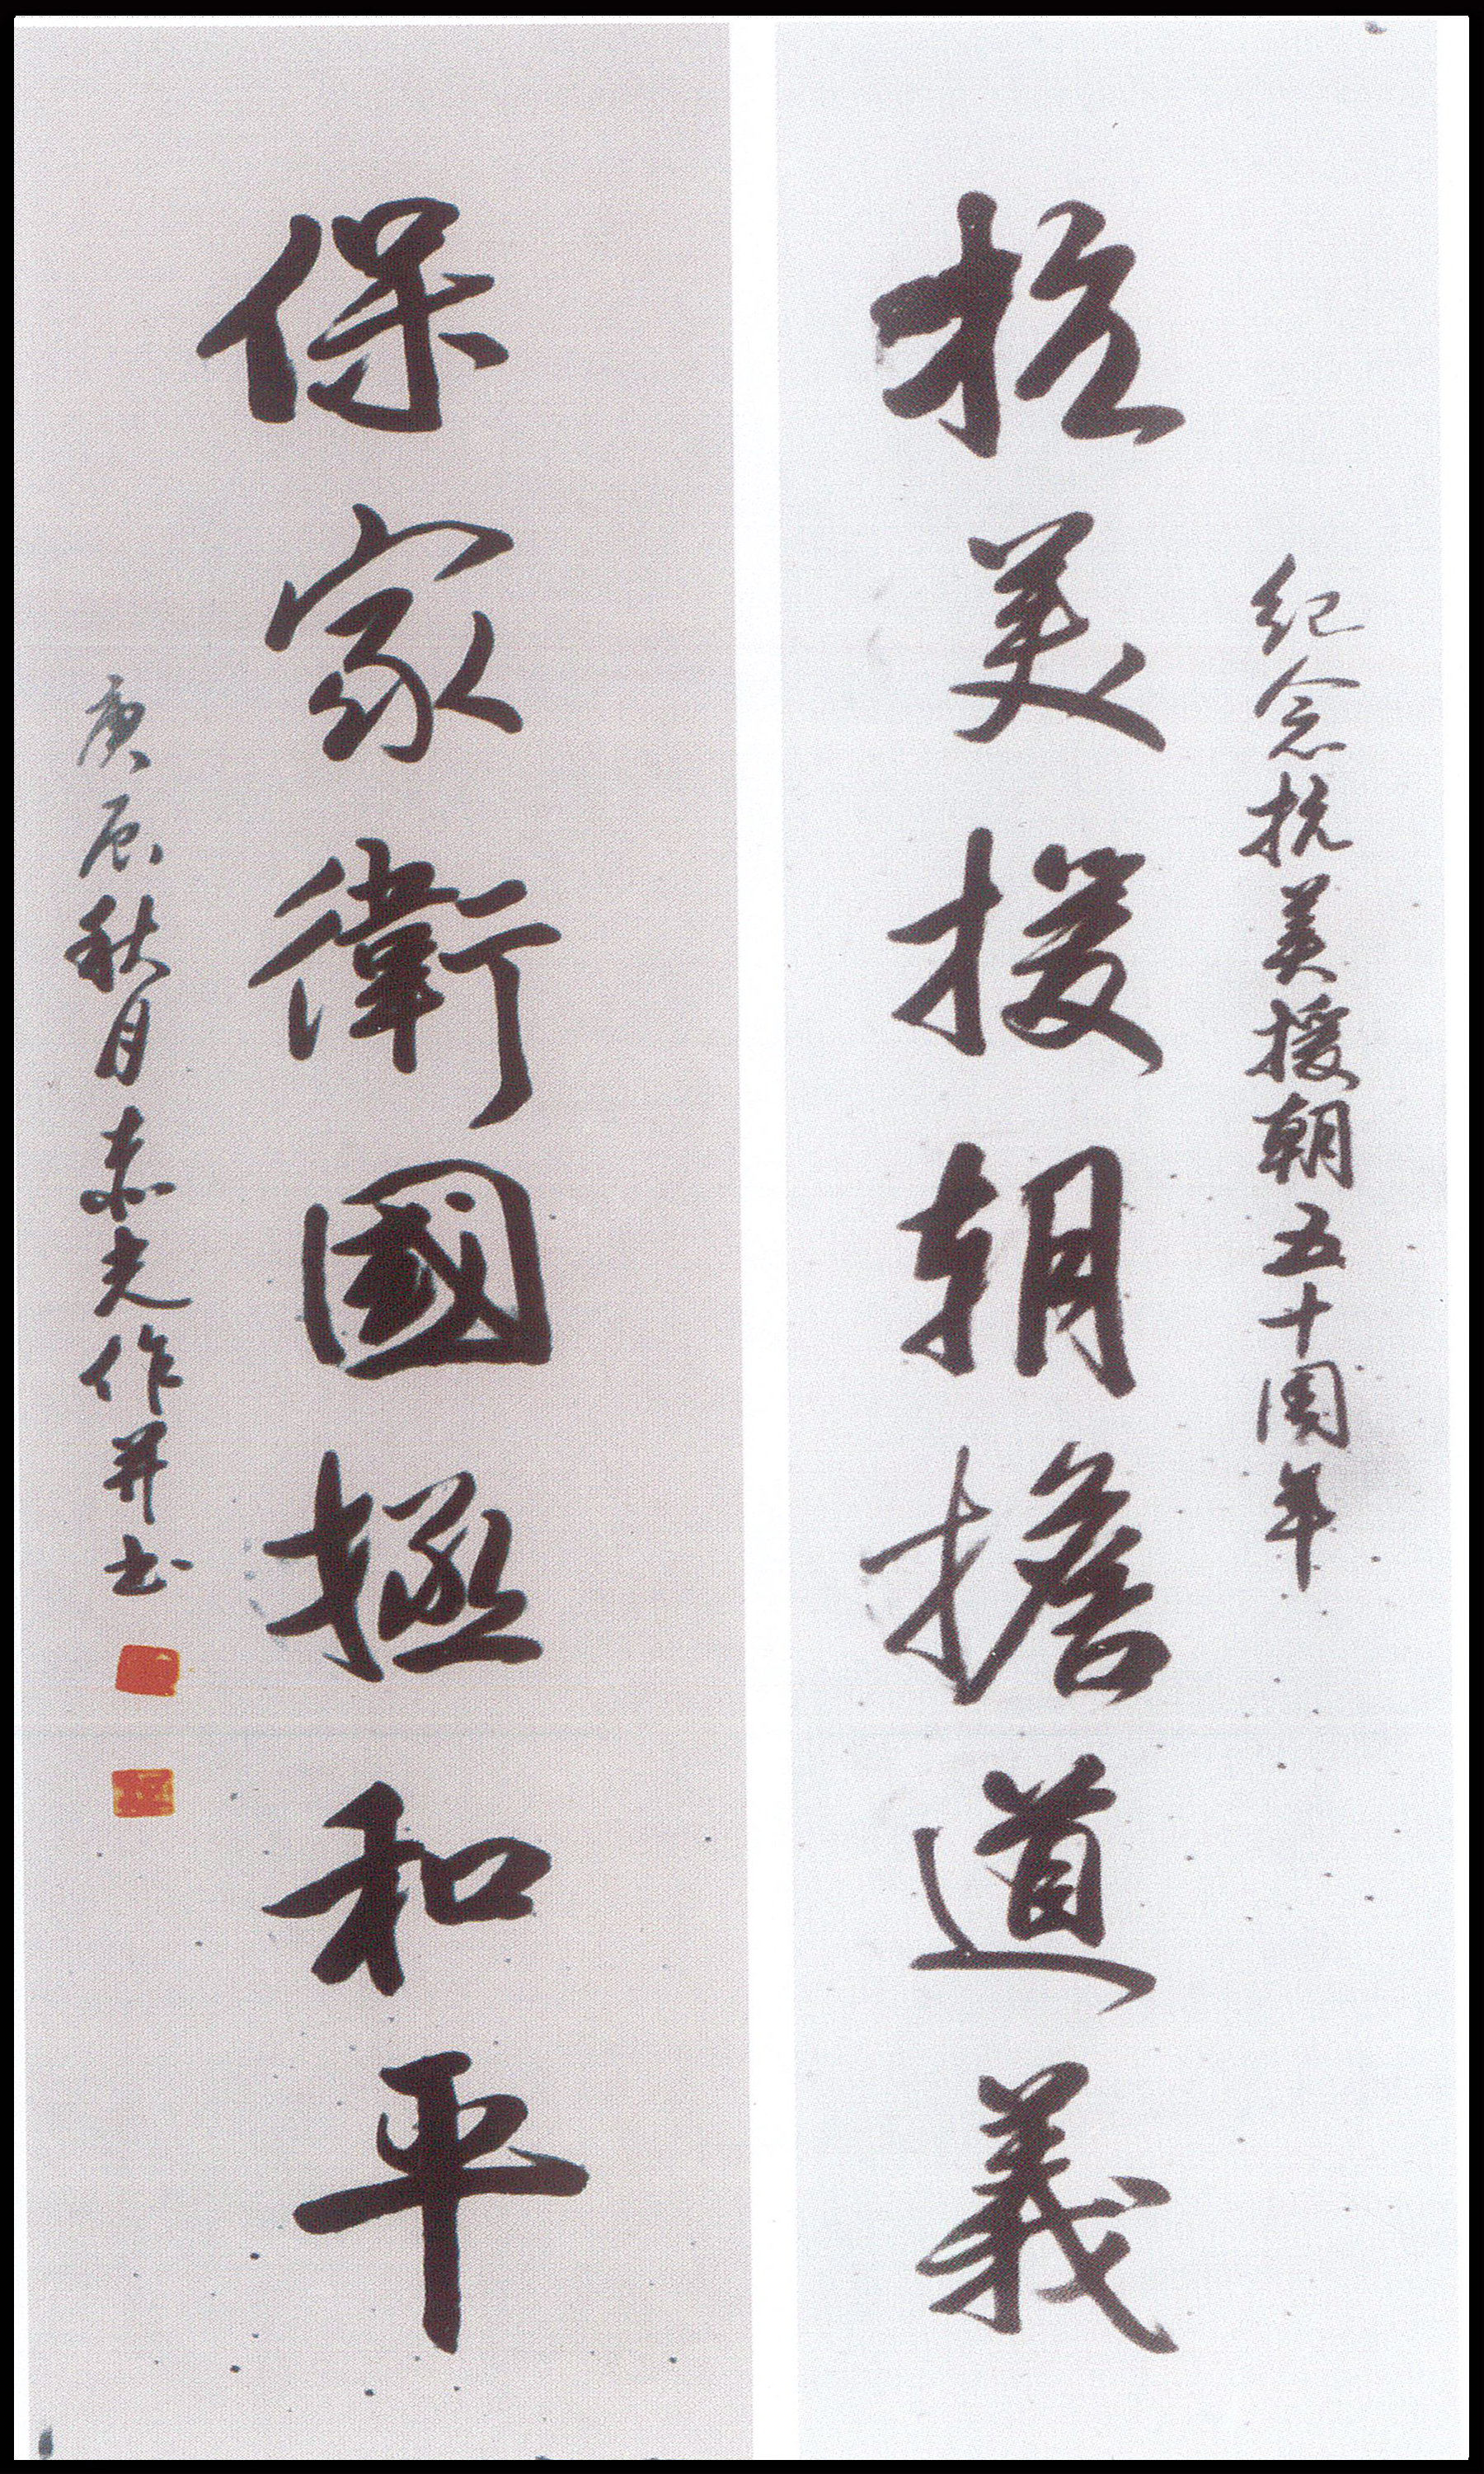 纪念抗美援朝五十周年
抗美援朝擔道義
保家衛國拯和平
庚辰秋月 光作并书